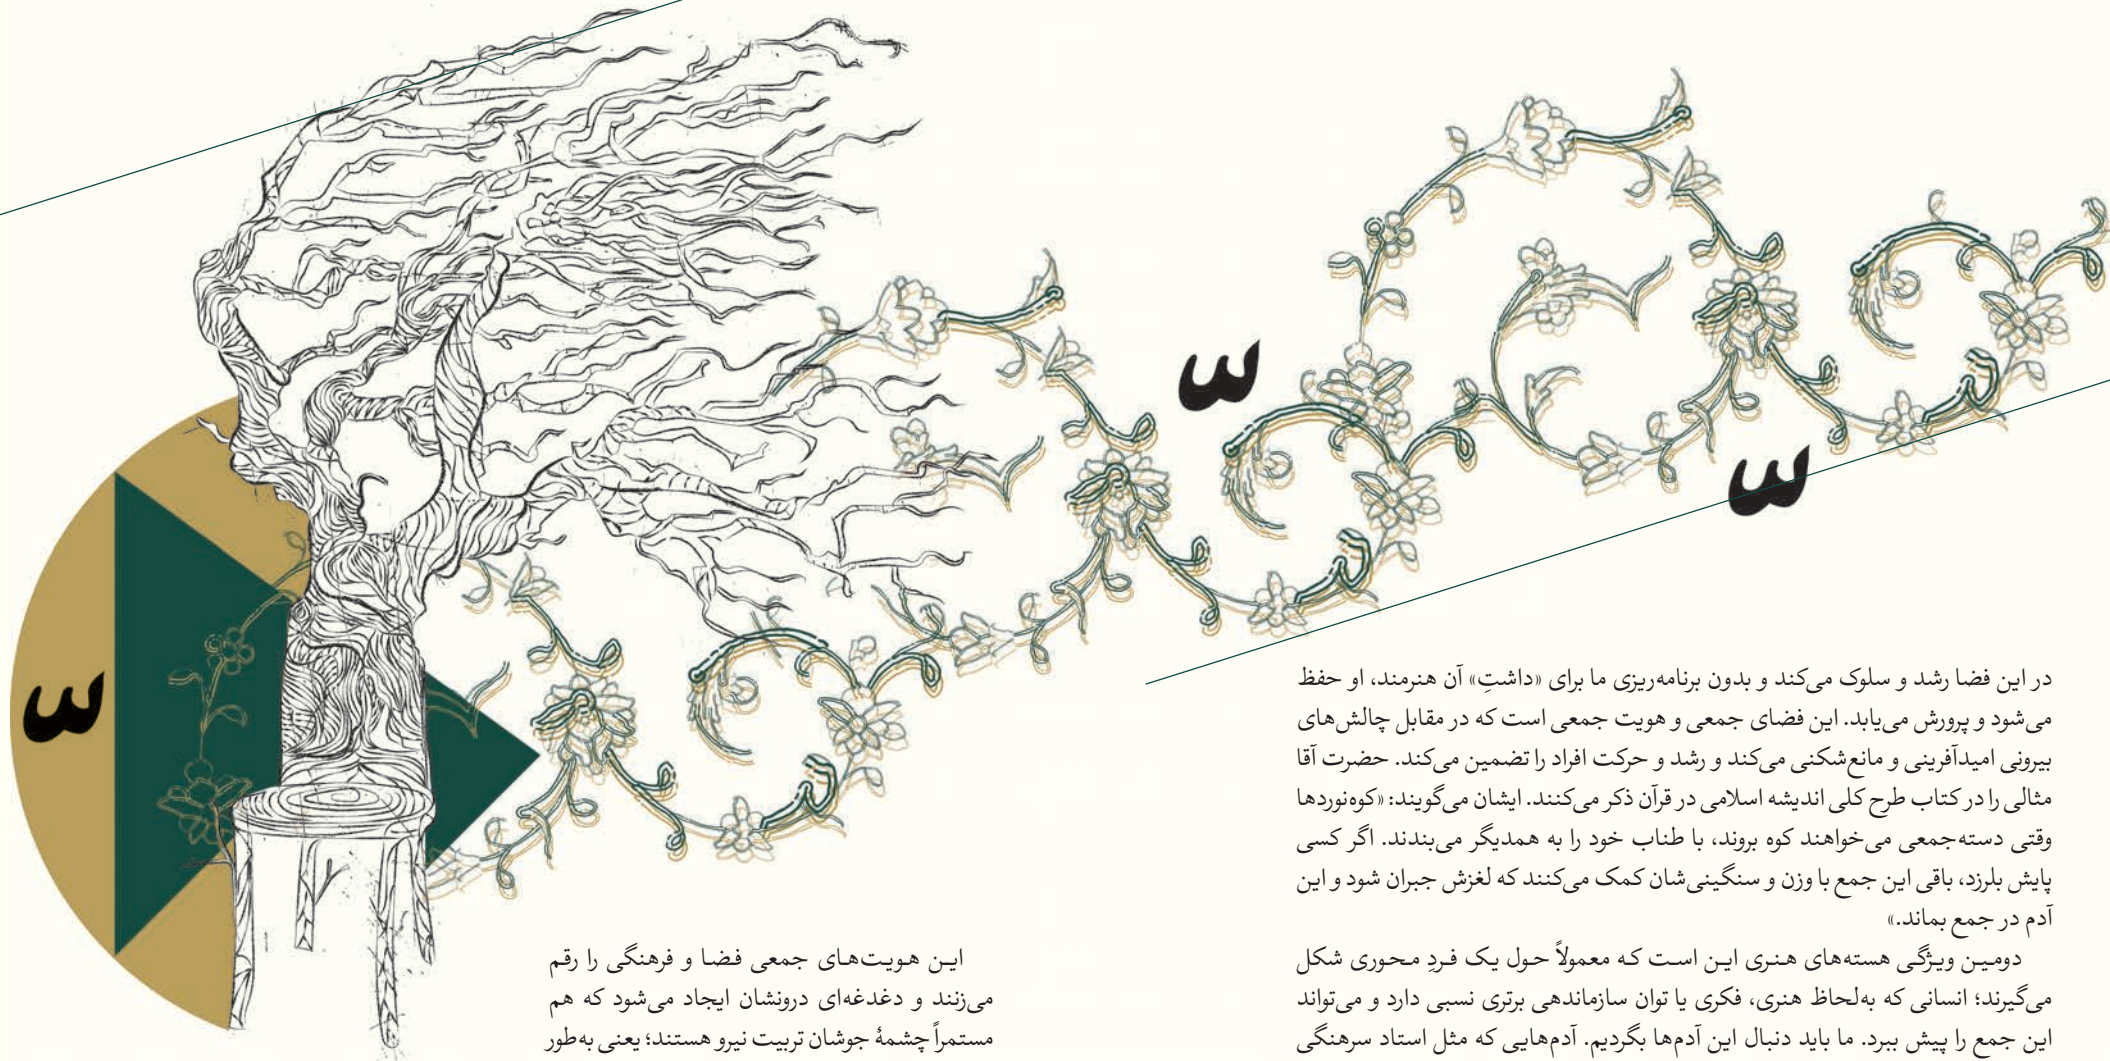 در این فضا رشد و سلوک می‌کند و بدون برنامه‌ریزی ما برای «داشتِ» آن هنرمند، او حفظ
می‌شود و پرورش می‌یابد. این فضای جمعی و هویت جمعی است که در مقابل چالش‌های
بیرونی امیدآفرینی و مانع‌شکنی می‌کند و رشد و حرکت افراد را تضمین می‌کند. حضرت آقا
مثالی را در کتاب طرح کلی اندیشه اسلامی در قرآن ذکر می‌کنند. ایشان می‌گویند: «کوه‌نوردها
وقتی دسته‌جمعی می‌خواهند کوه بروند، با طناب خود را به همدیگر می‌بندند. اگر کسی
پایش بلرزد، باقی این جمع با وزن و سنگینی‌شان کمک می‌کنند که لغزش جبران شود و این
آدم در جمع بماند.»
دومین ویژگی هسته‌های هنری این است که معمولاً حول یک فردِ محوری شکل
می‌گیرند؛ انسانی که به‌لحاظ هنری، فکری یا توان سازماندهی برتری نسبی دارد و می‌تواند
این جمع را پیش ببرد. ما باید دنبال این آدم‌ها بگردیم. آدم‌هایی که مثل استاد سرهنگی
این هویت‌های جمعی فضا و فرهنگی را رقم
می‌زنند و دغدغه‌ای درونشان ایجاد می‌شود که هم
مستمراً چشمهٔ جوشان تربیت نیرو هستند؛ یعنی به‌طور